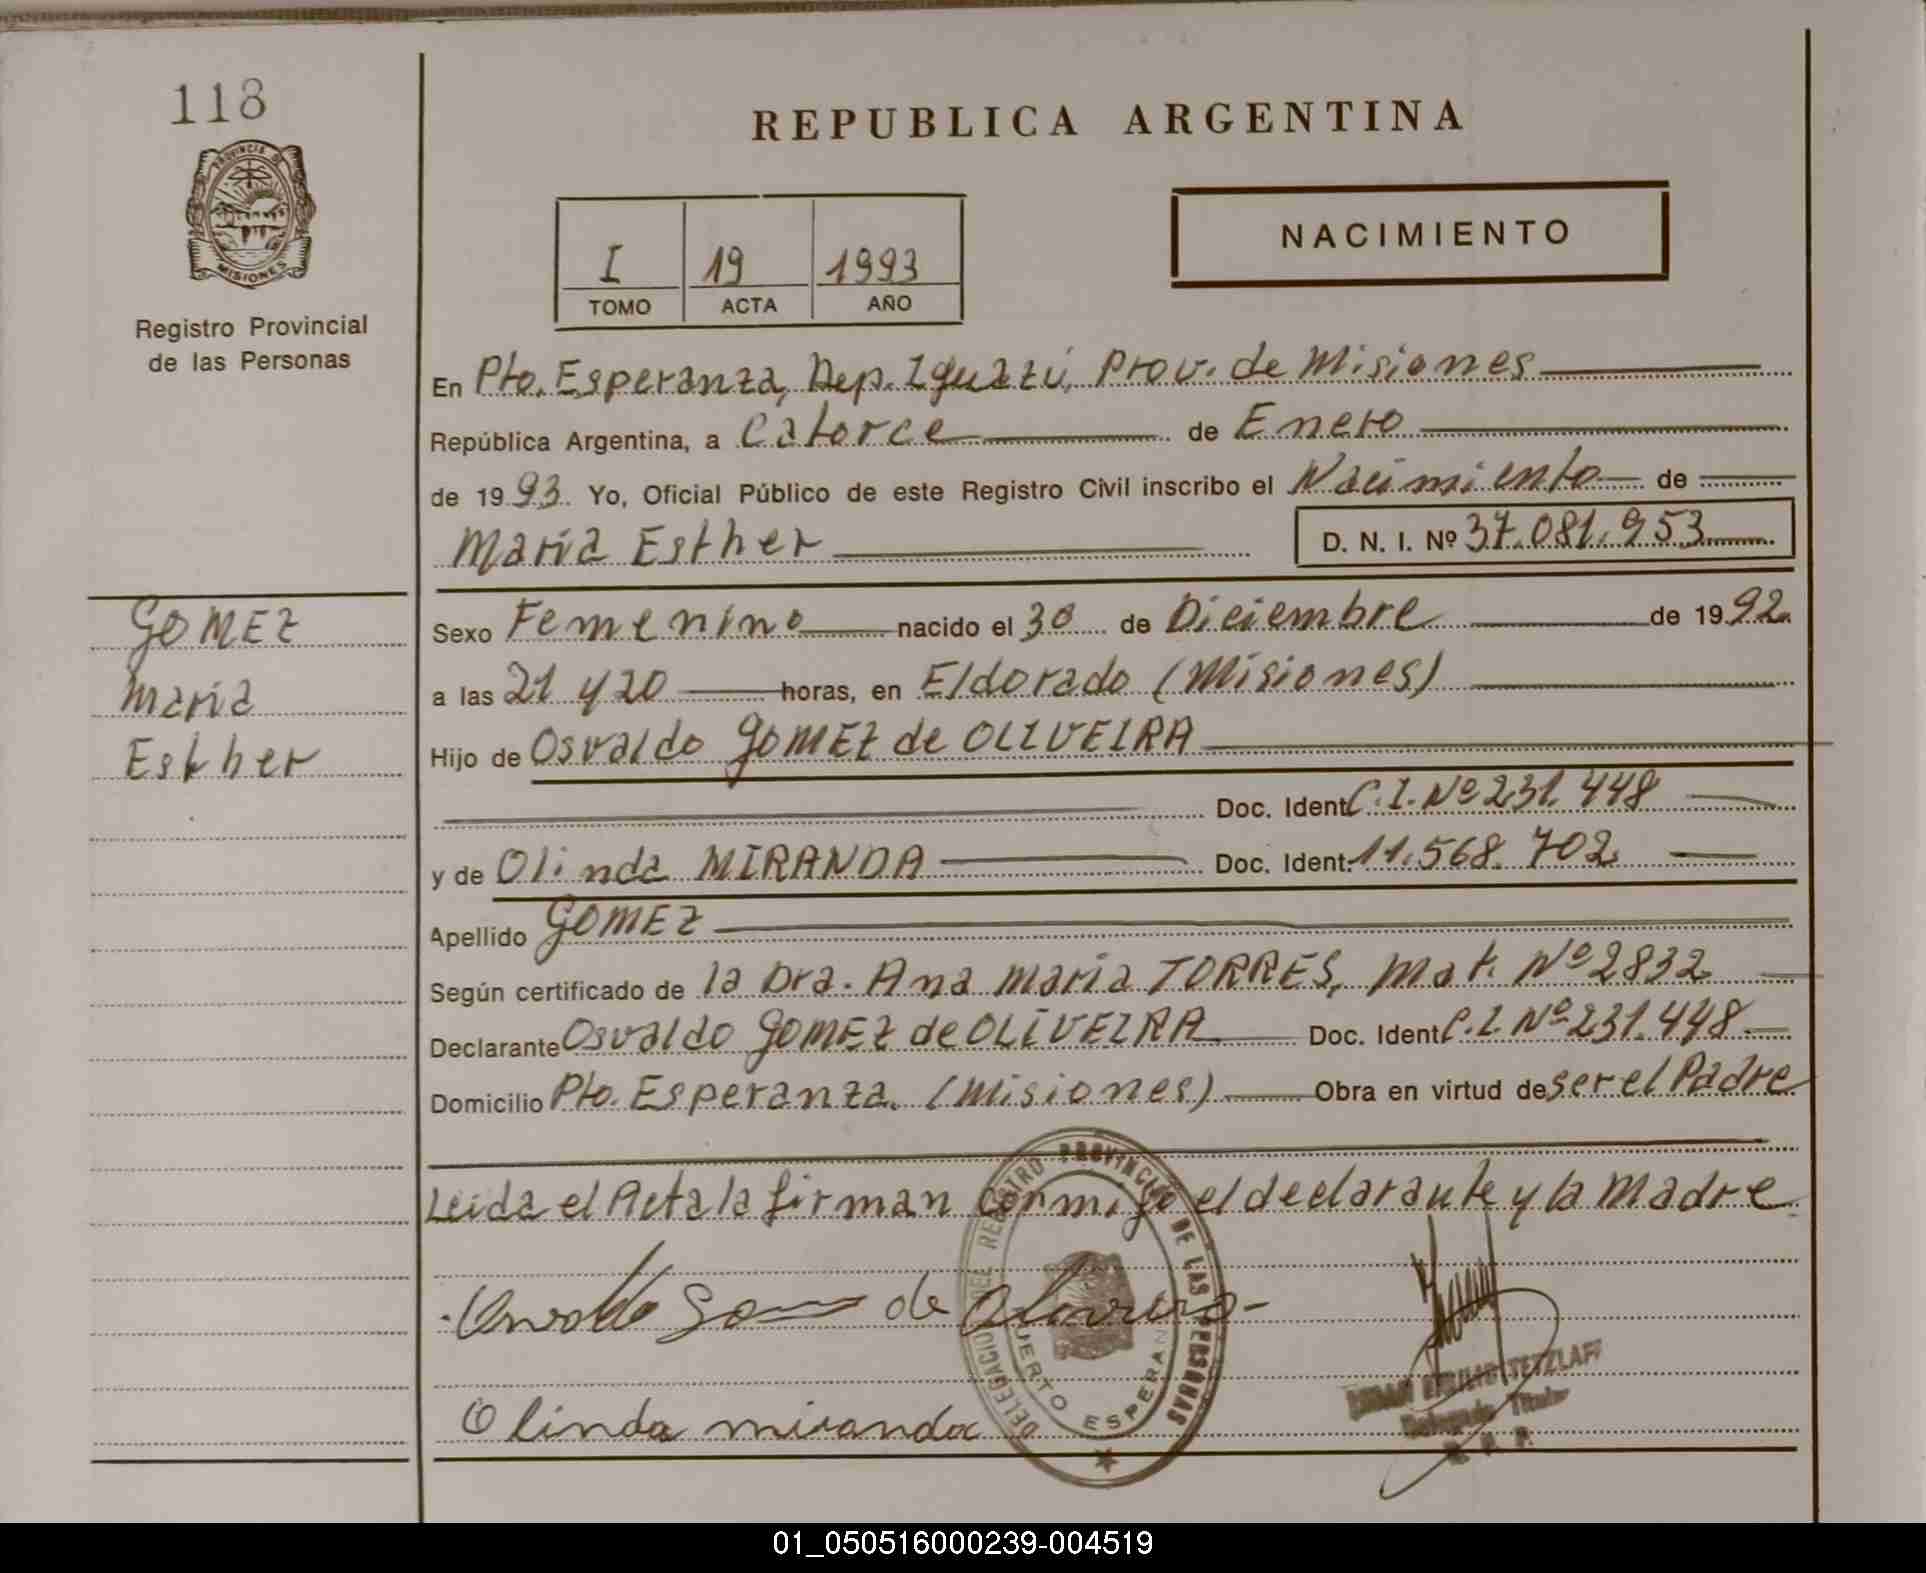 118
PROVINCIA DE
MISIONES
Registro Provincial
de las Personas
REPUBLICA ARGENTINA
I 19 1993
TOMO ACTA AÑO
NACIMIENTO
En Pto. Esperanza, Dep. Iguazú, Prov. de Misiones
República Argentina, a Catorce de Enero
de 1993. Yo, Oficial Público de este Registro Civil inscribo el Nacimiento de
María Esther D. N. I. Nº 37.081.953
GOMEZ
María
Esther
Sexo Femenino nacido el 30 de Diciembre de 1992.
a las 21 y 20 horas, en Eldorado (Misiones)
Hijo de Osvaldo GOMEZ de OLIVEIRA
Doc. Ident. C.I. Nº 231.448
y de Olinda MIRANDA Doc. Ident. 11.568.702
Apellido GOMEZ
Según certificado de la Dra. Ana María TORRES, Mat. Nº 2832
Declarante Osvaldo GOMEZ de OLIVEIRA Doc. Ident. C.I. Nº 231.448
Domicilio Pto. Esperanza. (Misiones) Obra en virtud de ser el Padre
Leida el Acta la firman conmigo el declarante y la Madre
Osvaldo Gomez de Oliveira
Olinda miranda
DELEGACION DEL REGISTRO PROVINCIAL DE LAS PERSONAS
PUERTO ESPERAN
TETZLAFF
Delegado Titular
R. P. P.
01_050516000239-004519